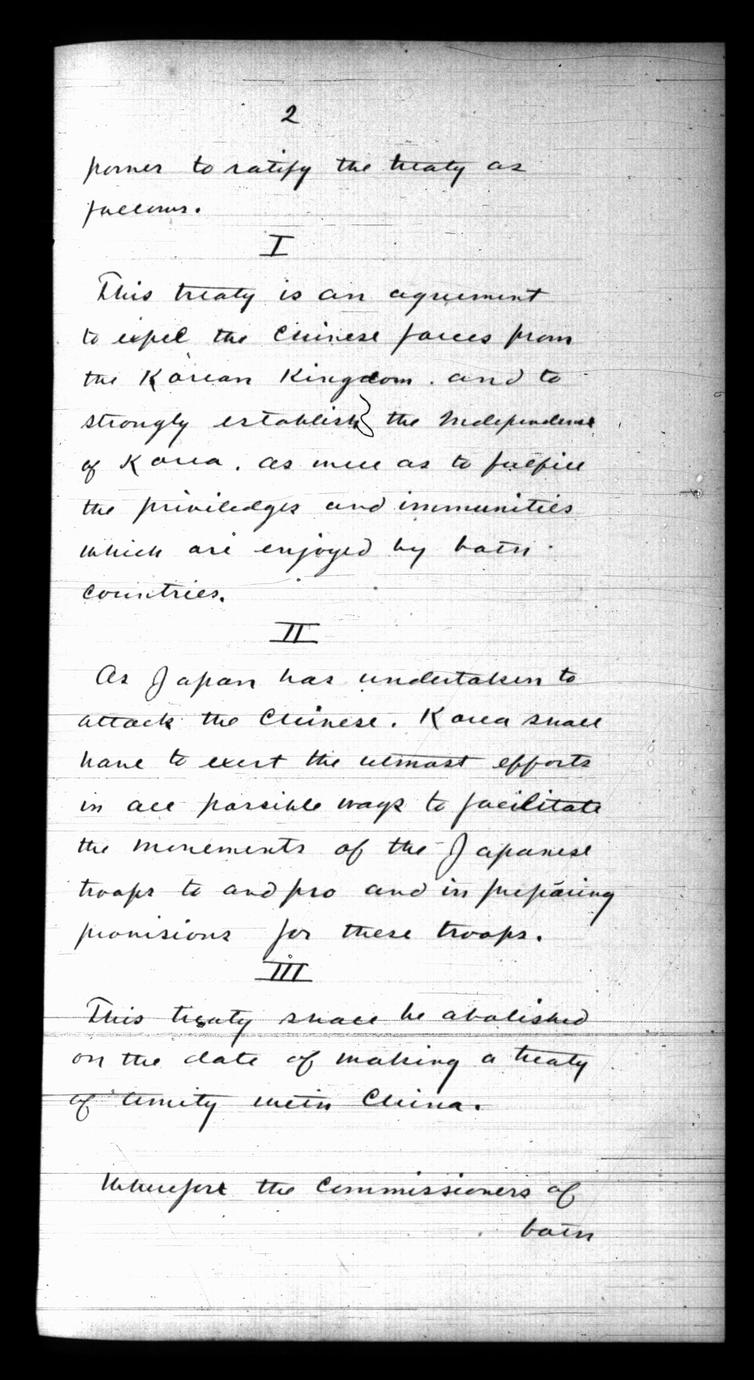 2
power to ratify the treaty as
follows.
I
This treaty is an agreement
to expel the Chinese forces from
the Korean Kingdom. and to
strongly establish the Independence
of Korea, as well as to fulfill
the priviledges and immunities
which are enjoyed by both
countries.
II
As Japan has undertaken to
attack the Chinese. Korea shall
have to exert the utmost efforts
in all possible ways to facilitate
the movements of the Japanese
troops to and fro and in preparing
provisions for these troops.
III
This treaty shall be abolished
on the date of making a treaty
of amity with China.
Wherefore the Commissioners of
both